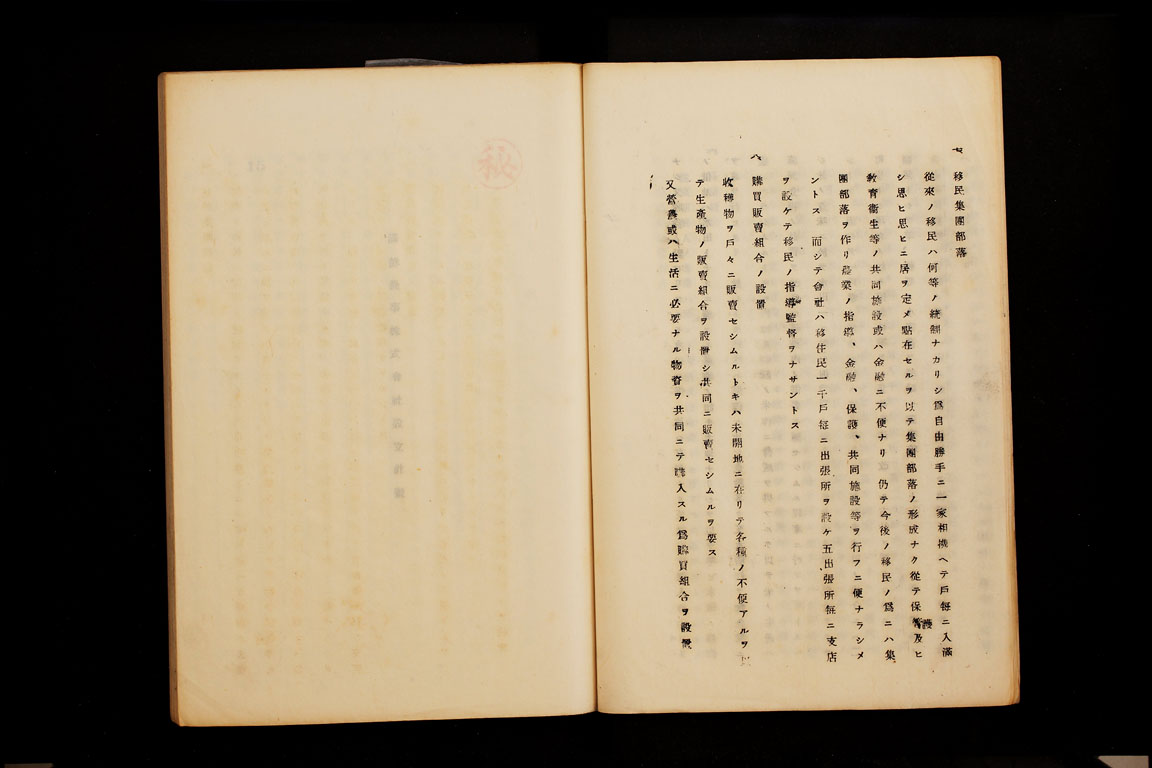 七、移民集團部落
從來ノ移民ハ何等ノ統制ナカリシ爲自由勝手ニ一家相携ヘテ戶每ニ入滿
シ思ヒ思ヒニ居ヲ定メ點在セルヲ以テ集團部落ノ形成ナク從テ保護及ヒ
敎育衞生等ノ共同施設或ハ金融ニ不便ナリ仍テ今後ノ移民ノ爲ニハ集
團部落ヲ作リ農業ノ指導、金融、保護、共同施設等ヲ行フニ便ナラシメ
ントス 而シテ會社ハ移住民一千戶每ニ出張所ヲ設ケ五出張所每ニ支店
ヲ設ケテ移民ノ指導監督ヲナサントス
八、購買販賣組合ノ設置
收穫物ヲ戶々ニ販賣セシムルトキハ未開地ニ在リテ各種ノ不便アルヲ以
テ生產物ノ販賣組合ヲ設置シ共同ニ販賣セシムルヲ要ス
又營農或ハ生活ニ必要ナル物資ヲ共同ニテ購入スル爲購買組合ヲ設置
秘